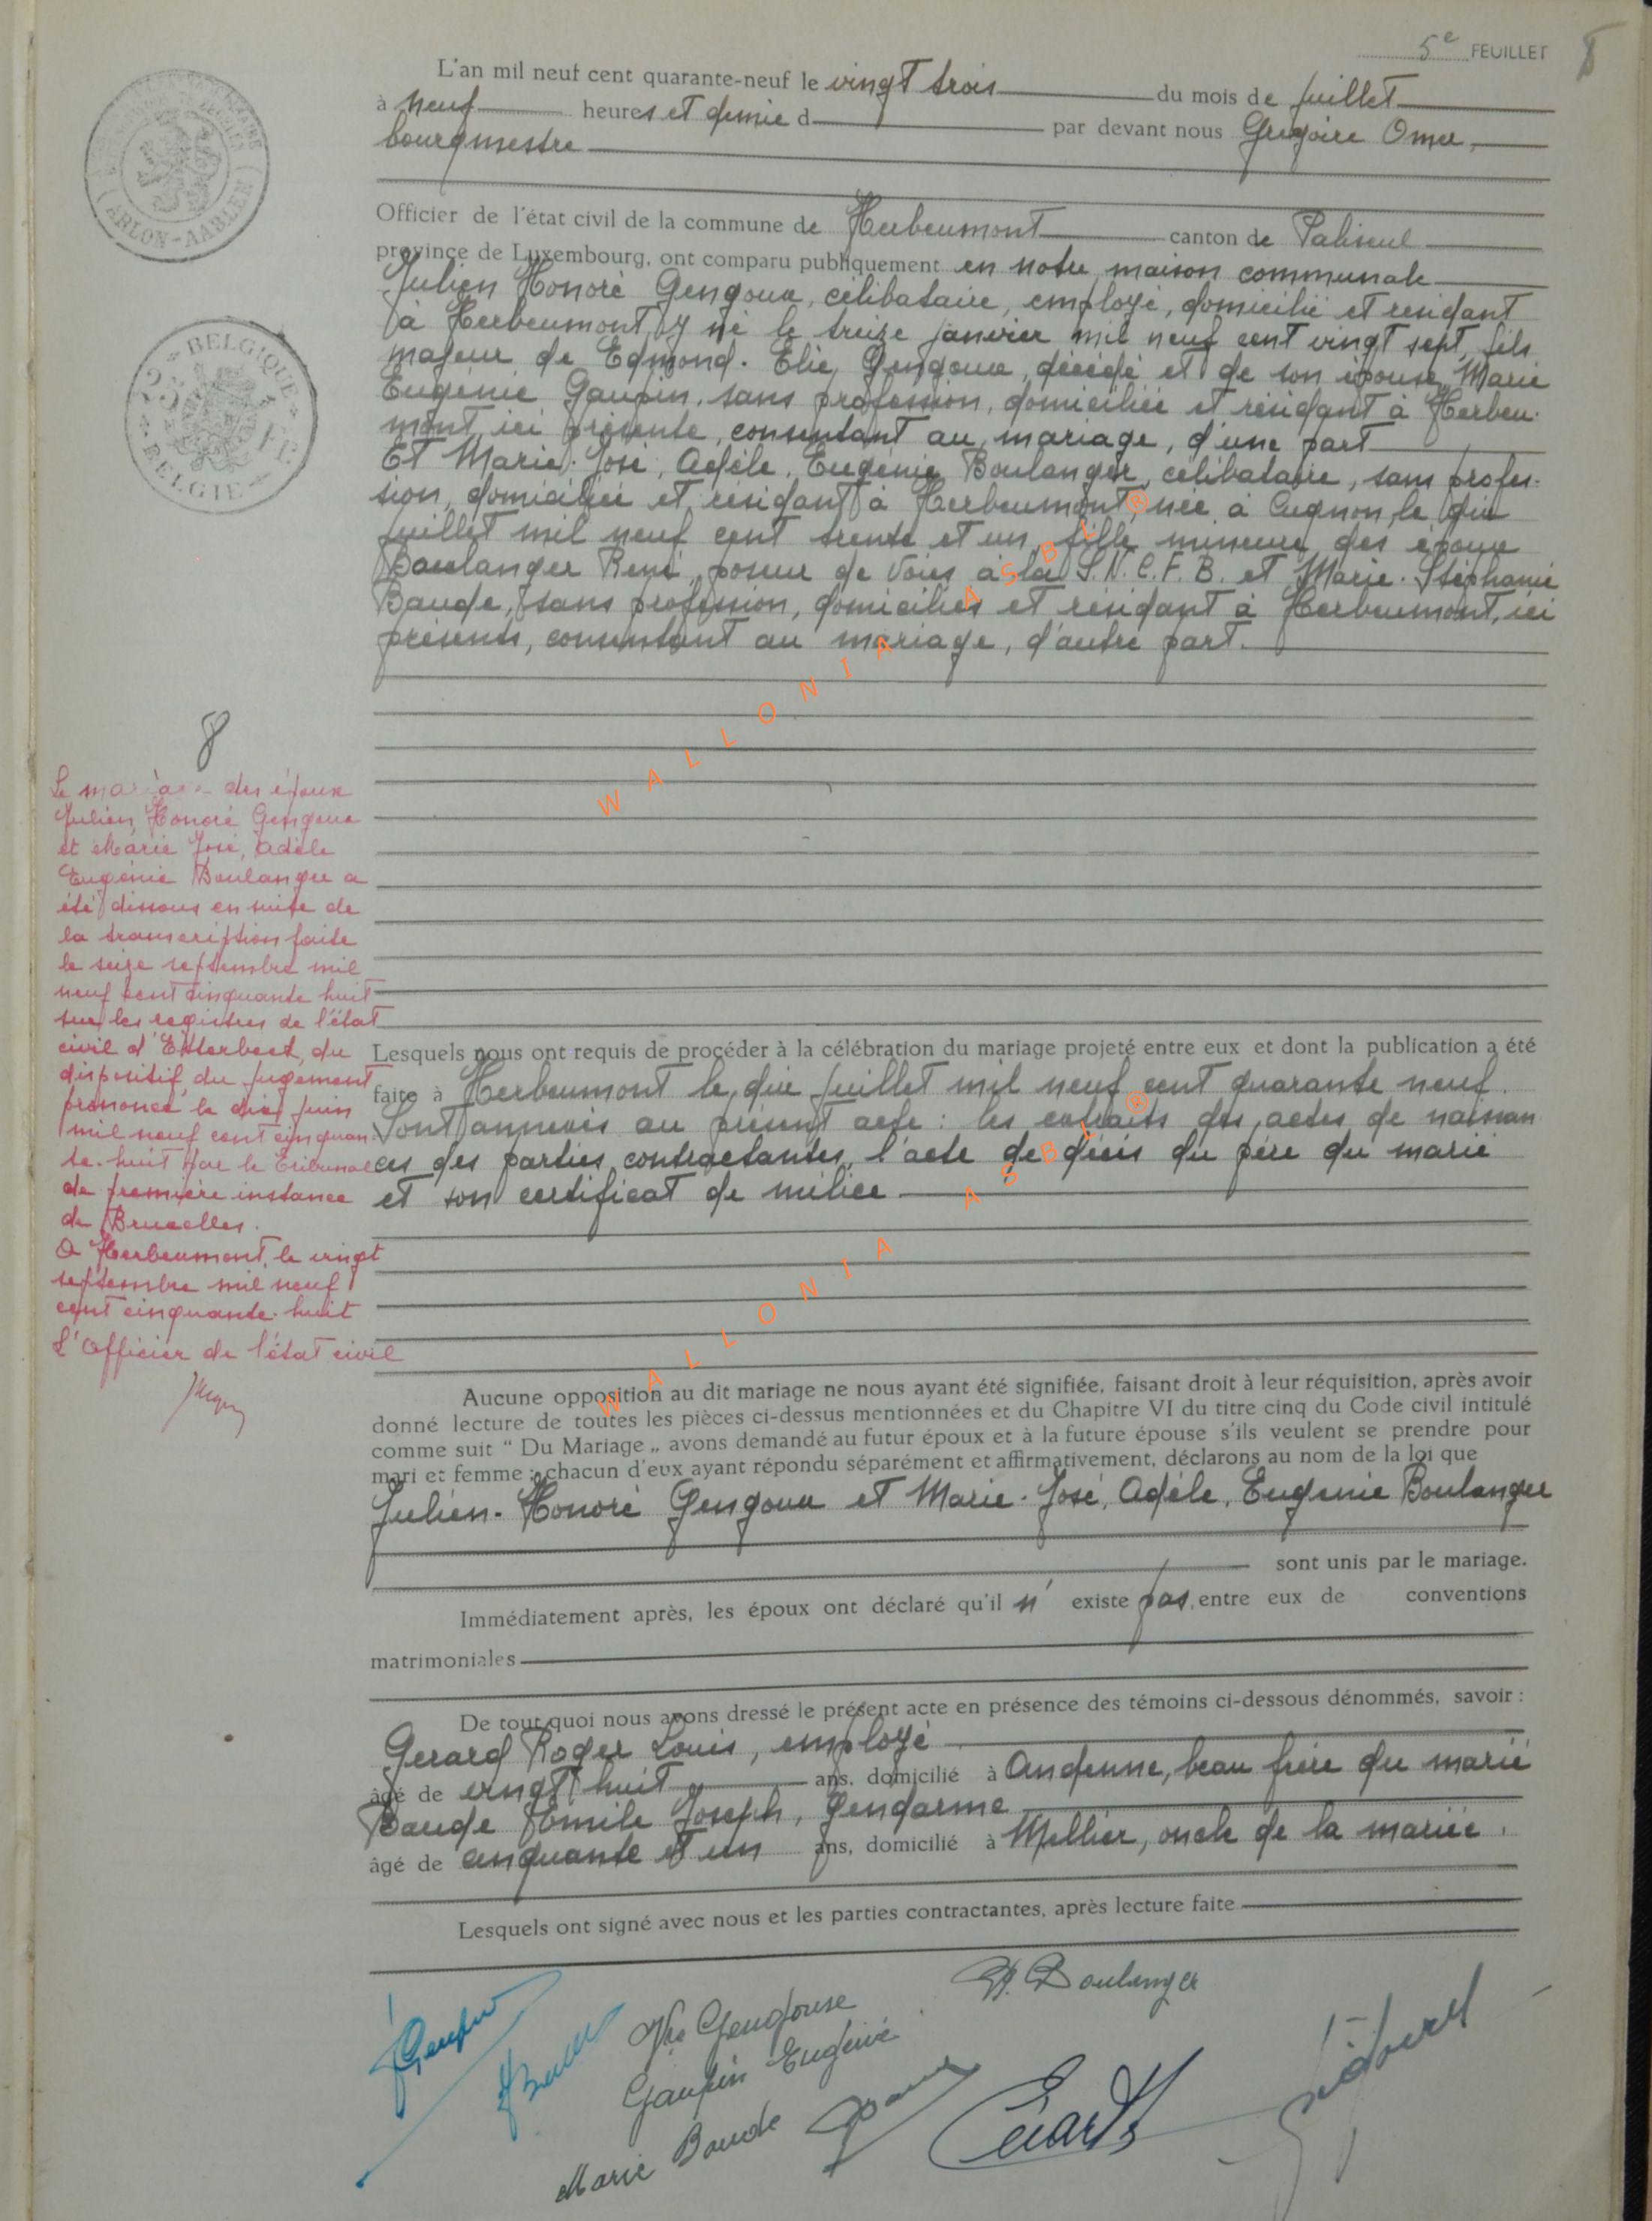 5e FEUILLET 8
L'an mil neuf cent quarante-neuf le vingt trois du mois de juillet
à neuf heures et demie d par devant nous Grégoire Omer,
bourgmestre
Officier de l'état civil de la commune de Herbeumont canton de Paliseul
province de Luxembourg, ont comparu publiquement en notre maison communale
Julien Honoré Gengoux, célibataire, employé, domicilié et résidant
à Herbeumont, y né le treize janvier mil neuf cent vingt sept, fils
majeur de Edmond-Elie Gengoux, décédé et de son épouse, Marie
Eugénie Gaupin, sans profession, domiciliée et résidant à Herbeu-
mont, ici présente, consentant au mariage, d'une part
Et Marie-José, Adèle, Eugénie Boulanger, célibataire, sans profes-
sion, domiciliée et résidant à Herbeumont, née à Cugnon, le dix
juillet mil neuf cent trente et un, fille mineure des époux
Boulanger René, poseur de voies à la S.N.C.F.B. et Marie-Stéphanie
Baude, sans profession, domiciliés et résidant à Herbeumont, ici
présents, consentant au mariage, d'autre part.
8
Le mariage des époux
Julien Honoré Gengoux
et Marie José, Adèle
Eugénie Boulanger a
été dissous en suite de
la transcription faite
le seize septembre mil
neuf cent cinquante huit
sur les registres de l'état
civil d'Etterbeek, du
dispositif du jugement
prononcé le dix juin
mil neuf cent cinquan-
te-huit par le Tribunal
de première instance
de Bruxelles.
A Herbeumont, le vingt
septembre mil neuf
cent cinquante-huit
L'Officier de l'état civil
Lesquels nous ont requis de procéder à la célébration du mariage projeté entre eux et dont la publication a été
faite à Herbeumont le dix juillet mil neuf cent quarante neuf.
Sont annexés au présent acte : les extraits des actes de naissan
ces des parties contractantes, l'acte de décès du père du marié
et son certificat de milice
Aucune opposition au dit mariage ne nous ayant été signifiée, faisant droit à leur réquisition, après avoir
donné lecture de toutes les pièces ci-dessus mentionnées et du Chapitre VI du titre cinq du Code civil intitulé
comme suit “ Du Mariage „ avons demandé au futur époux et à la future épouse s'ils veulent se prendre pour
mari et femme ; chacun d'eux ayant répondu séparément et affirmativement, déclarons au nom de la loi que
Julien-Honoré Gengoux et Marie-José, Adèle, Eugénie Boulanger
sont unis par le mariage.
Immédiatement après, les époux ont déclaré qu'il n' existe pas entre eux de conventions
matrimoniales
De tout quoi nous avons dressé le présent acte en présence des témoins ci-dessous dénommés, savoir :
Gerard Roger Louis, employé
âgé de vingt huit ans, domicilié à Andenne, beau frère du marié
Baude Emile Joseph, gendarme
âgé de cinquante et un ans, domicilié à Mellier, oncle de la mariée.
Lesquels ont signé avec nous et les parties contractantes, après lecture faite
R. Boulanger
Vve Gendouse
Gaupin Eugénie
Marie Baude
ARLON-AARLEN
BELGIQUE
25 FR.
BELGIE
WALLONIA ASBL ®
WALLONIA ASBL ®